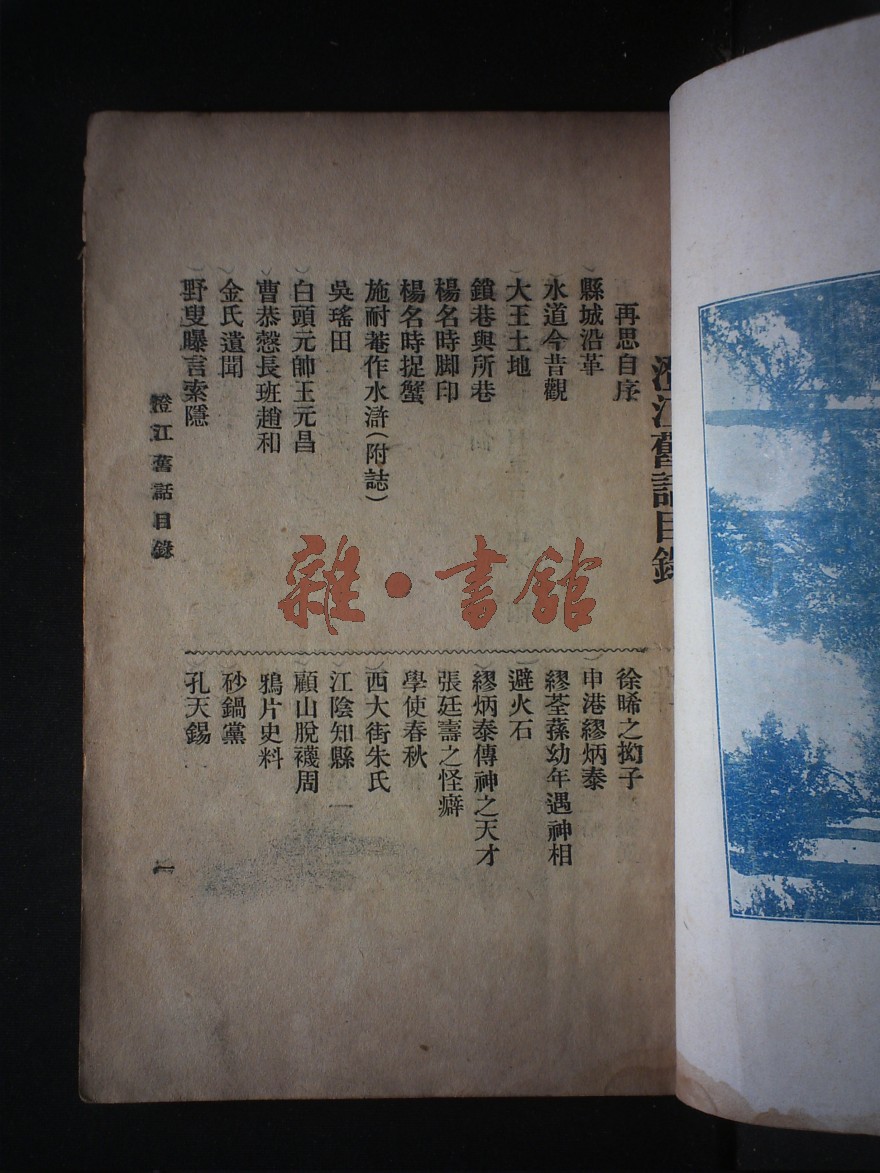 澄江舊話目錄
再思自序
縣城沿革
水道今昔觀
大王土地
鎖巷與所巷
楊名時脚印
楊名時捉蟹
施耐菴作水滸(附誌)
吳瑤田
白頭元帥王元昌
曹恭慤長班趙和
金氏遺聞
野叟曝言索隱
徐晞之拗子
申港繆炳泰
繆荃蓀幼年遇神相
避火石
繆炳泰傳神之天才
張廷壽之怪癖
學使春秋
西大街朱氏
江陰知縣
顧山脫襪周
鴉片史料
砂鍋黨
孔天錫
澄江舊話目錄
一
雜·書館